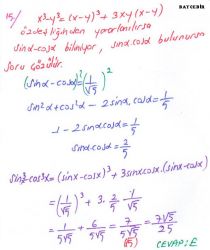 BAYCEBİR
15/ x³-y³ = (x-y)³ + 3xy(x-y)
özdeşliğinden yararlanılırsa
sinα-cosα biliniyor, sinα.cosα bulunursa
soru çözülür.
(sinα-cosα)² = (1/√5)²
sin²α+cos²α - 2sinα.cosα = 1/5
1 - 2sinα.cosα = 1/5
sinα.cosα = 2/5
sin³α-cos³α = (sinα-cosα)³ + 3sinα.cosα.(sinα-cosα)
= (1/√5)³ + 3.2/5.1/√5
= 1/5√5 + 6/5√5 = 7/5√5 = 7√5/25
(√5) CEVAP: E